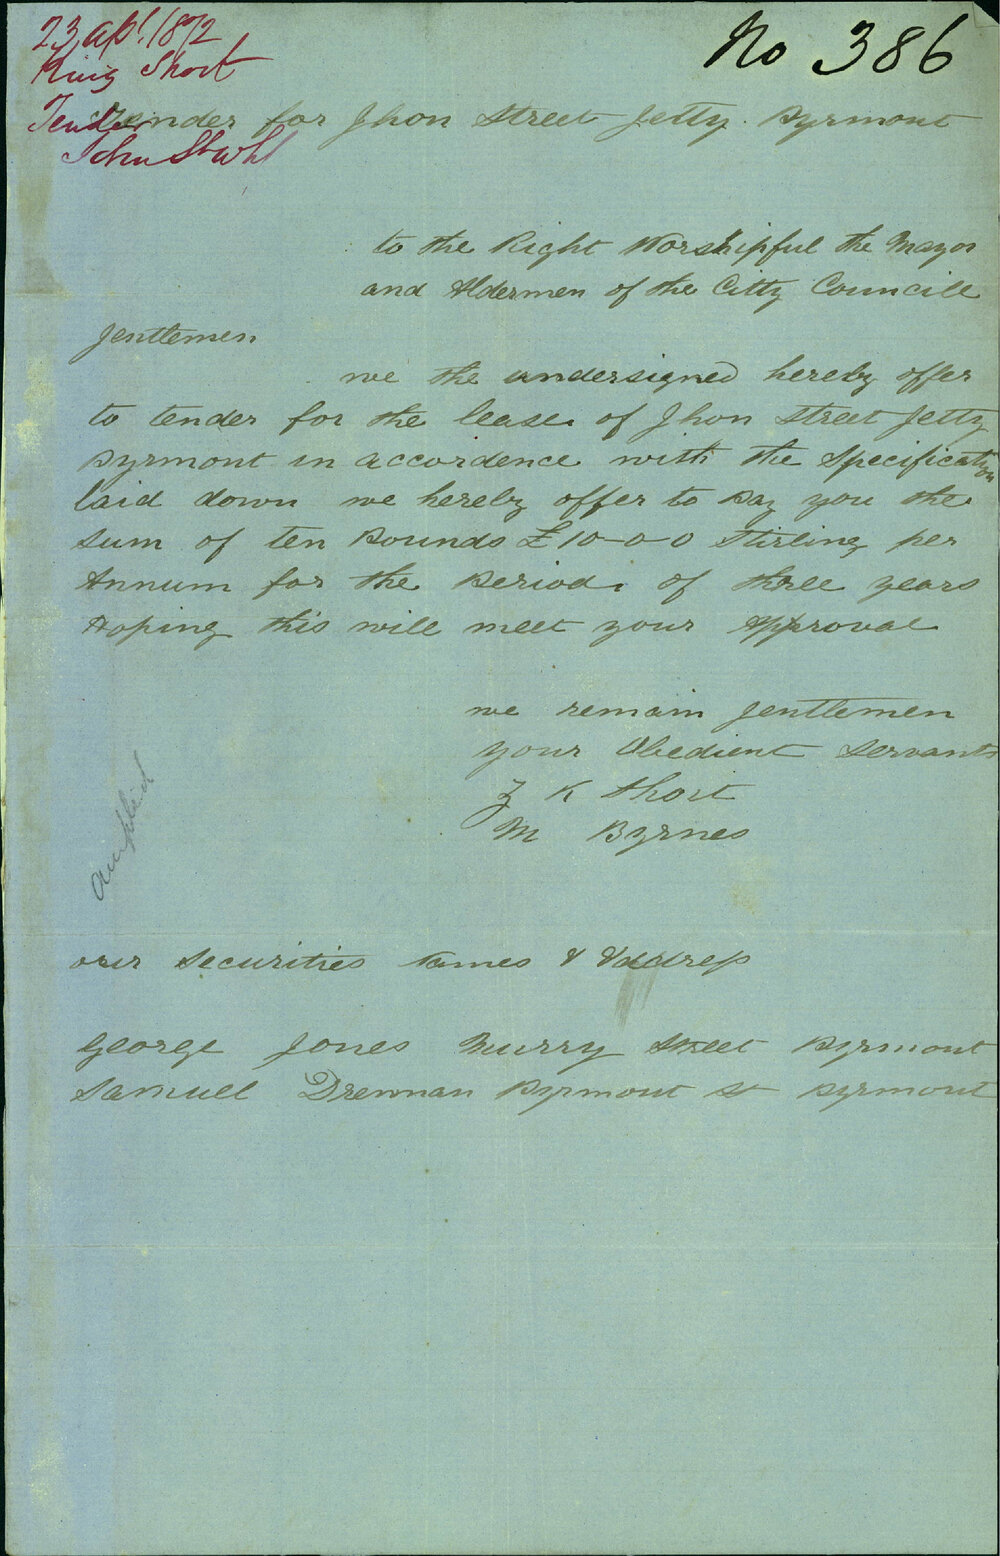 23 apl. 1872
King Short
Tender
John St Whf
No 386
Tender for Jhon Street Jetty. Pyrmont
to the Right Worshipful the Mayor
and Aldermen of the Citty Councill
Gentlemen
we the undersigned hereby offer
to tender for the lease of Jhon Street Jetty
Pyrmont in accordence with the Specification
laid down we hereby offer to Pay you the
sum of ten Pounds £10-0-0 Stirling per
Annum for the Period of three years
Hoping this will meet your Approval
we remain Gentlemen
your Obedient Servants
K Short
M Byrnes
our Securities Names & Address
George Jones Murry Street Pyrmont
Samuell Drennan Pyrmont St Pyrmont